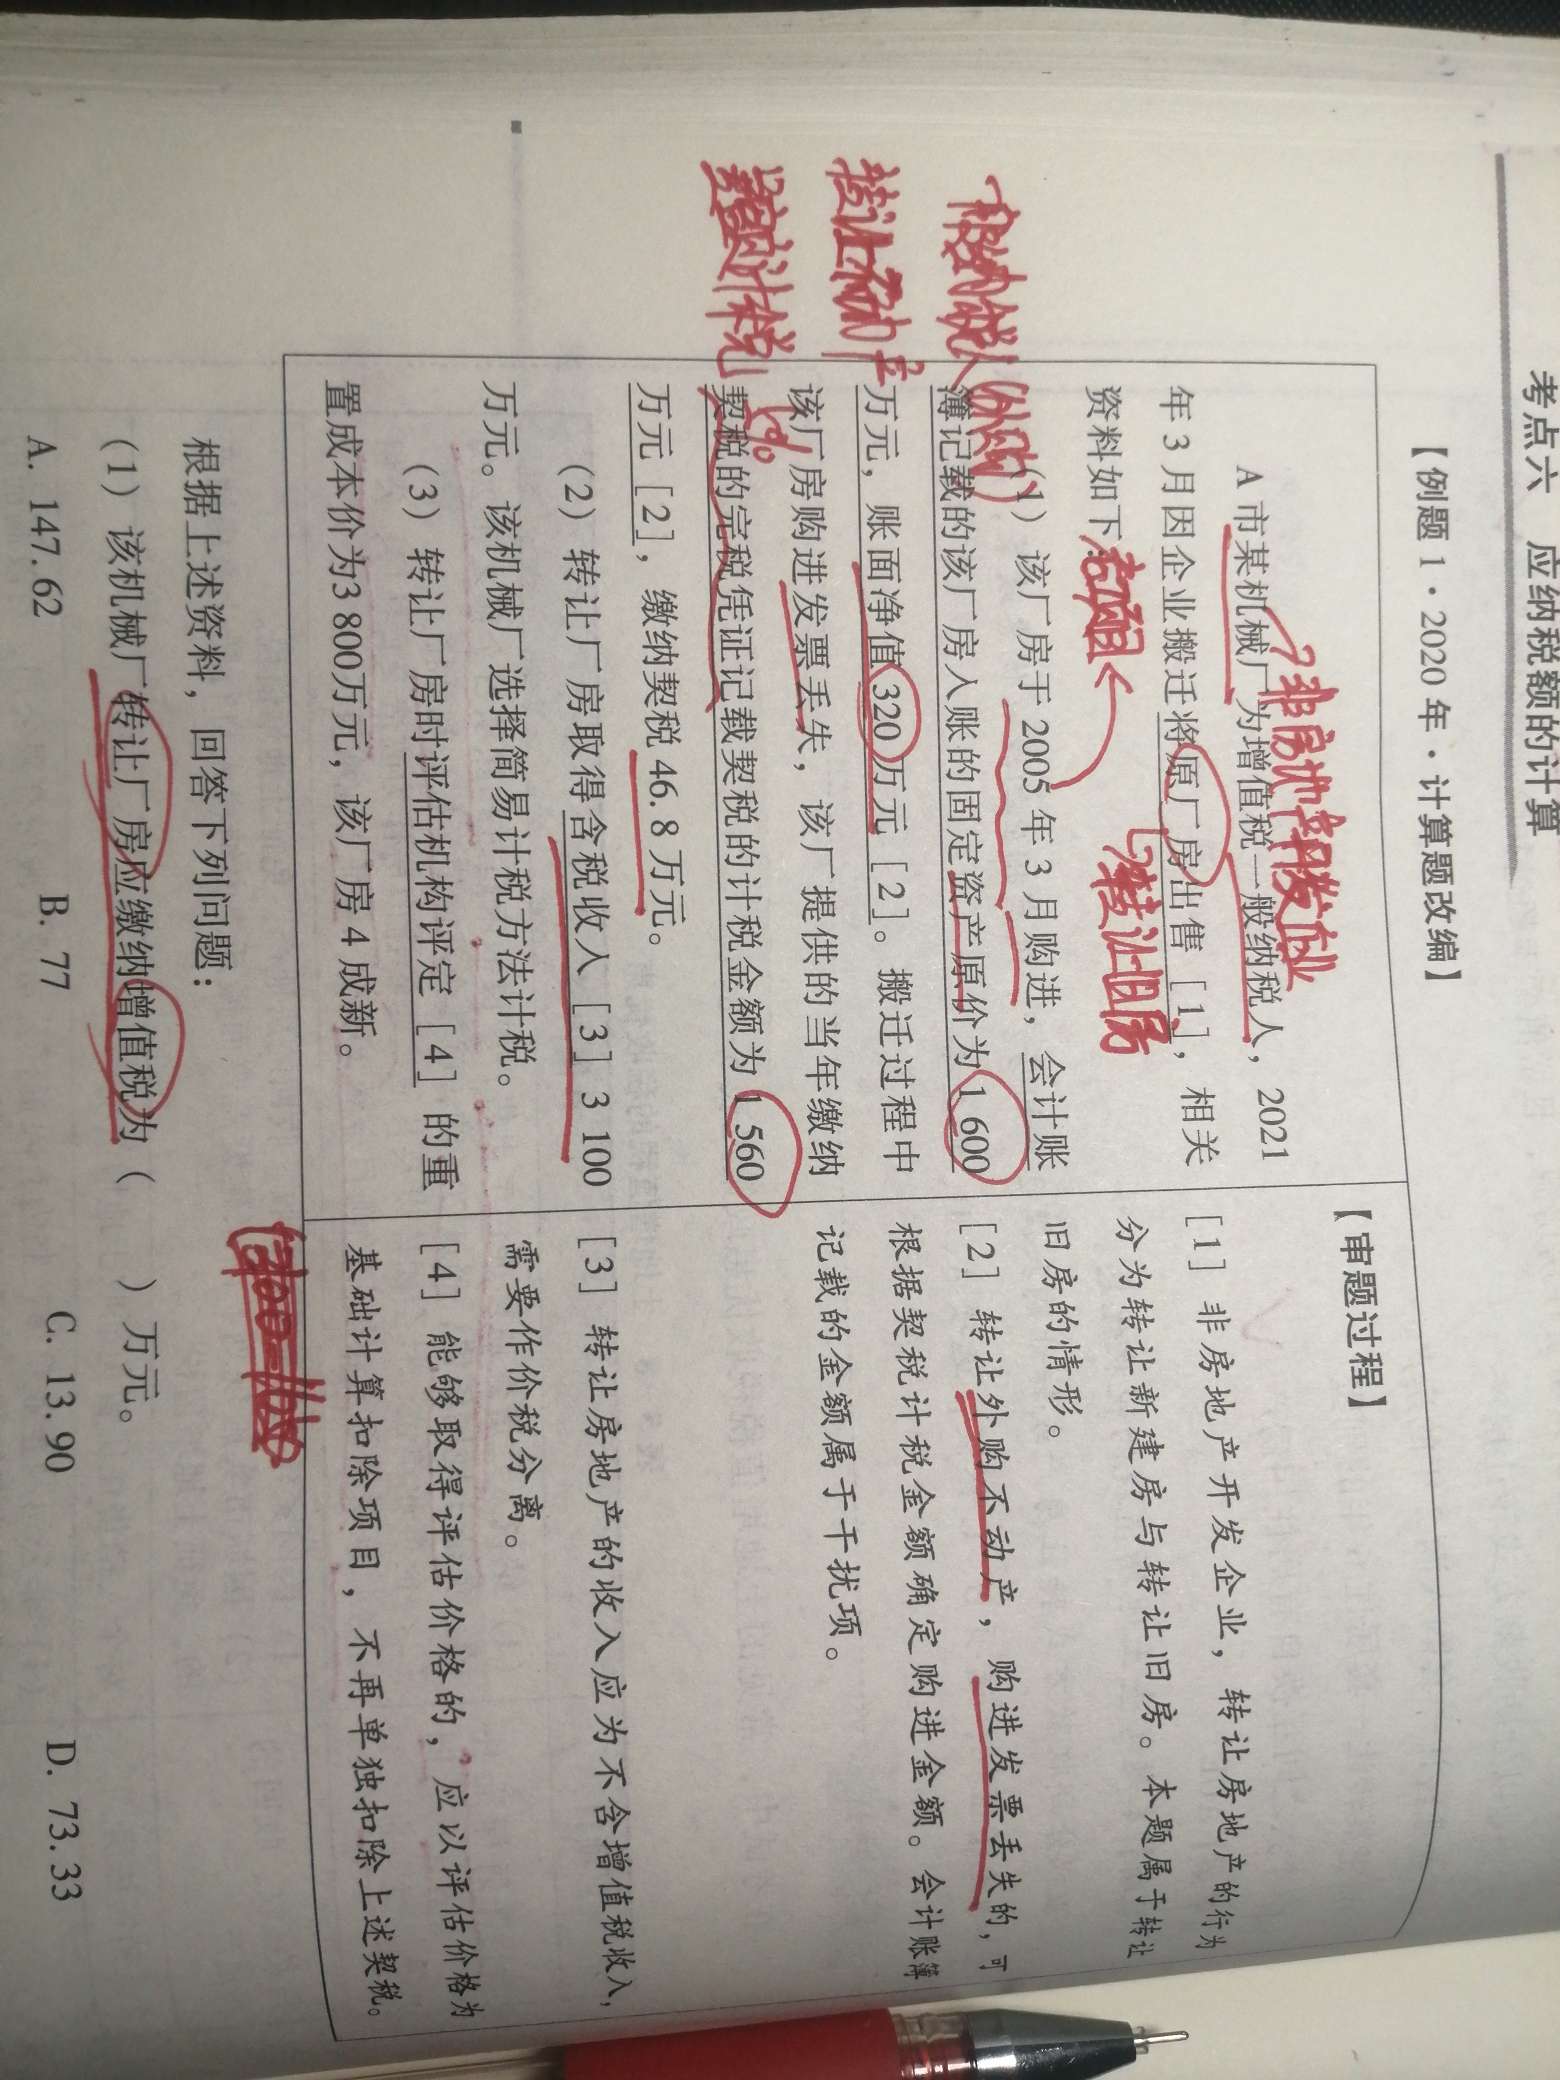 考点六 应纳税额的计算
【例题1·2020年·计算题改编】
A市某机械厂为增值税一般纳税人，2021
年3月因企业搬迁将原厂房出售［1］，相关
资料如下：
（1）该厂房于2005年3月购进，会计账
簿记载的该厂房入账的固定资产原价为1 600
万元，账面净值320万元［2］。搬迁过程中
该厂房购进发票丢失，该厂提供的当年缴纳
契税的完税凭证记载契税的计税金额为1 560
万元［2］，缴纳契税46.8万元。
（2）转让厂房取得含税收入［3］3 100
万元。该机械厂选择简易计税方法计税。
（3）转让厂房时评估机构评定［4］的重
置成本价为3 800万元，该厂房4成新。
非房地产开发企业
老项目
转让旧房
一般纳税人
(外购)
转让不动产
差额计税
5%
【审题过程】
［1］非房地产开发企业，转让房地产的行为
分为转让新建房与转让旧房。本题属于转让
旧房的情形。
［2］转让外购不动产，购进发票丢失的，可
根据契税计税金额确定购进金额。会计账簿
记载的金额属于干扰项。
［3］转让房地产的收入应为不含增值税收入，
需要作价税分离。
［4］能够取得评估价格的，应以评估价格为
基础计算扣除项目，不再单独扣除上述契税。
根据上述资料，回答下列问题：
（1）该机械厂转让厂房应缴纳增值税为（ ）万元。
A. 147.62 B. 77 C. 13.90 D. 73.33